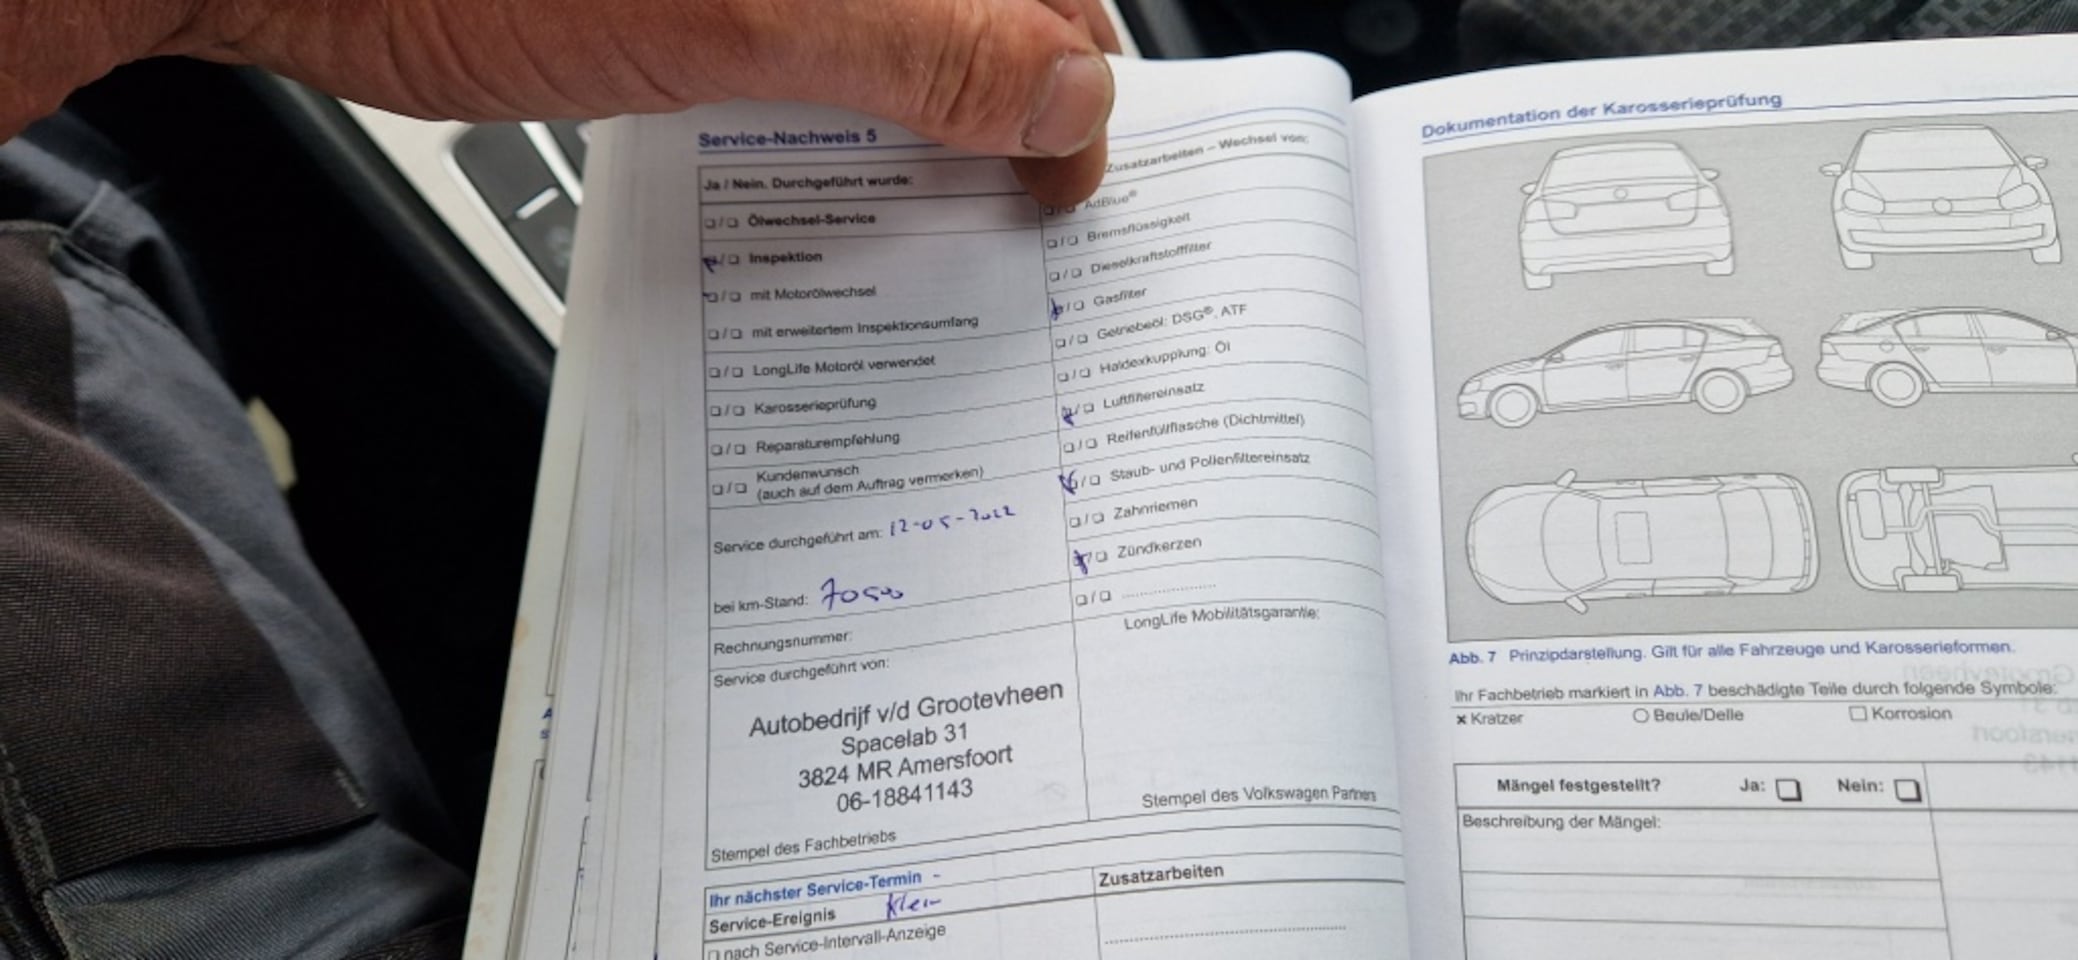 Service-Nachweis 5
Ja / Nein. Durchgeführt wurde:
Ölwechsel-Service
Inspektion
mit Motorölwechsel
mit erweitertem Inspektionsumfang
LongLife Motoröl verwendet
Karosserieprüfung
Reparaturempfehlung
Kundenwunsch
(auch auf dem Auftrag vermerken)
Service durchgeführt am: 12-05-2022
bei km-Stand:
Rechnungsnummer:
Service durchgeführt von:
Autobedrijf v/d Grootevheen
Spacelab 31
3824 MR Amersfoort
06-18841143
Stempel des Fachbetriebs
Zusatzarbeiten – Wechsel von:
AdBlue®
Bremsflüssigkeit
Dieselkraftstofffilter
Gasfilter
Getriebeöl: DSG®, ATF
Haldexkupplung: Öl
Luftfiltereinsatz
Reifenfüllflasche (Dichtmittel)
Staub- und Pollenfiltereinsatz
Zahnriemen
Zündkerzen
LongLife Mobilitätsgarantie:
Stempel des Volkswagen Partners
Ihr nächster Service-Termin
Service-Ereignis Klein
nach Service-Intervall-Anzeige
Zusatzarbeiten
Dokumentation der Karosserieprüfung
Abb. 7 Prinzipdarstellung. Gilt für alle Fahrzeuge und Karosserieformen.
Ihr Fachbetrieb markiert in Abb. 7 beschädigte Teile durch folgende Symbole:
× Kratzer ○ Beule/Delle □ Korrosion
Mängel festgestellt? Ja: Nein:
Beschreibung der Mängel: